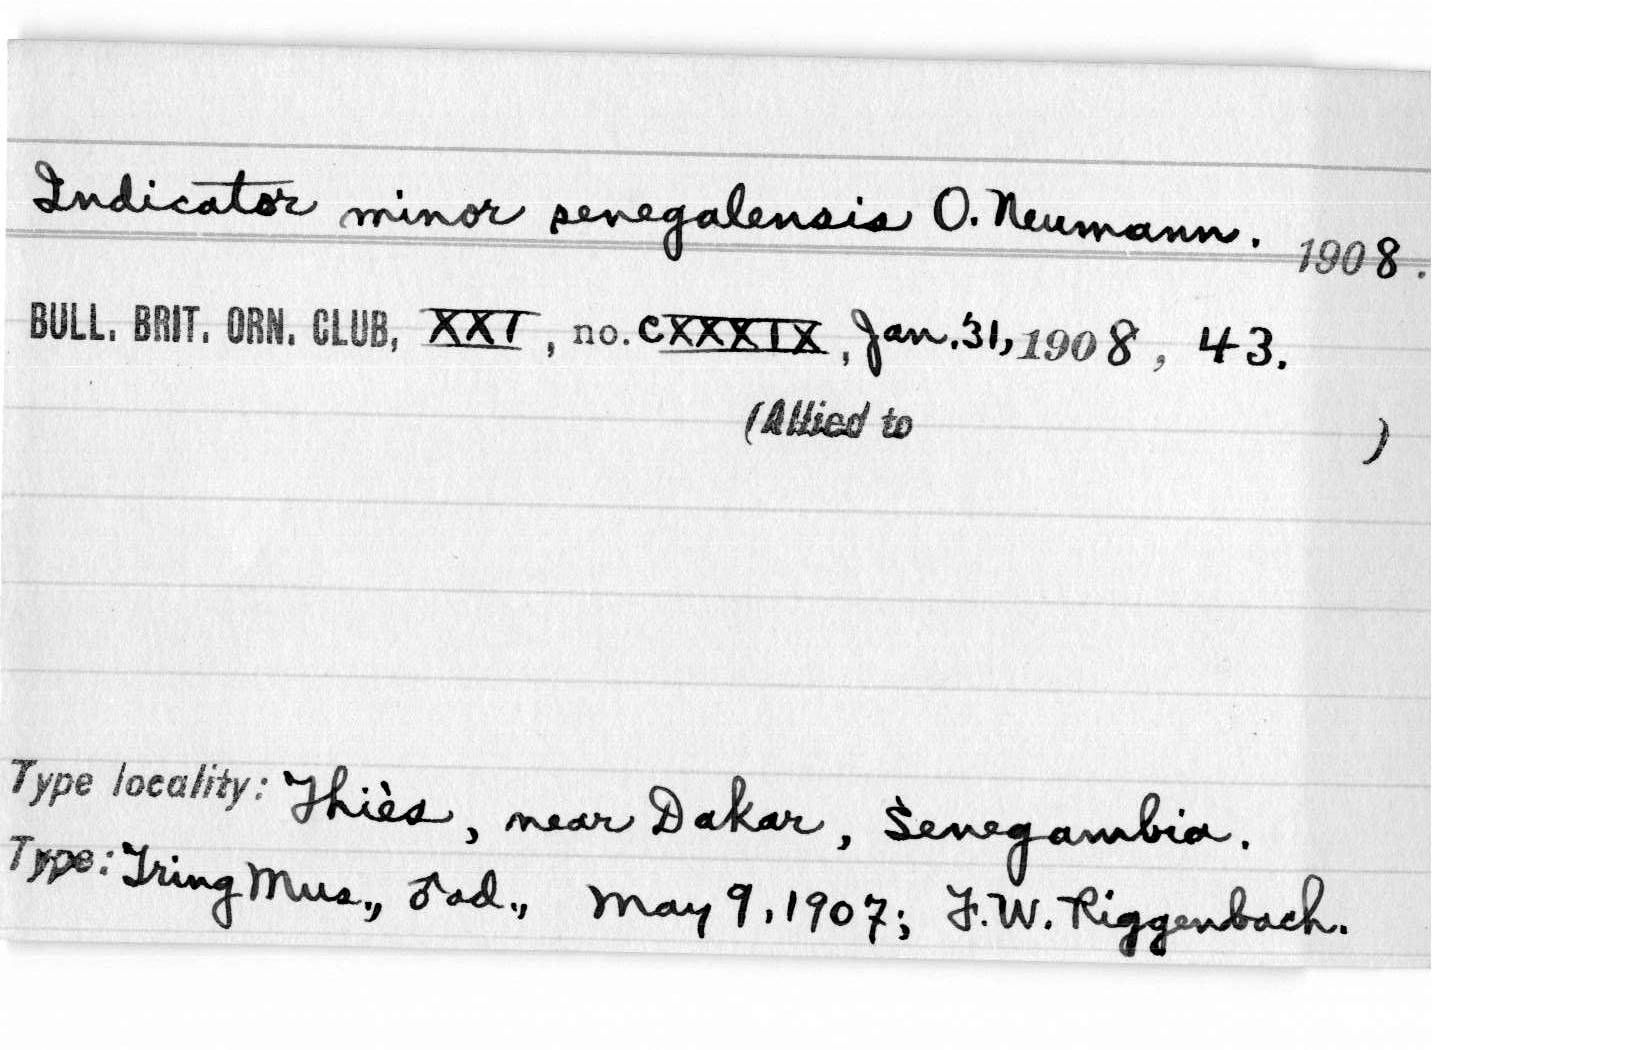 Indicator minor senegalensis O. Neumann. 1908.
BULL. BRIT. ORN. CLUB, XXI, no. CXXXIX, Jan. 31, 1908, 43.
(Allied to )
Type locality: Thiès, near Dakar, Senegambia.
Type: Tring Mus., ♂ ad., May 9, 1907; F. W. Riggenbach.